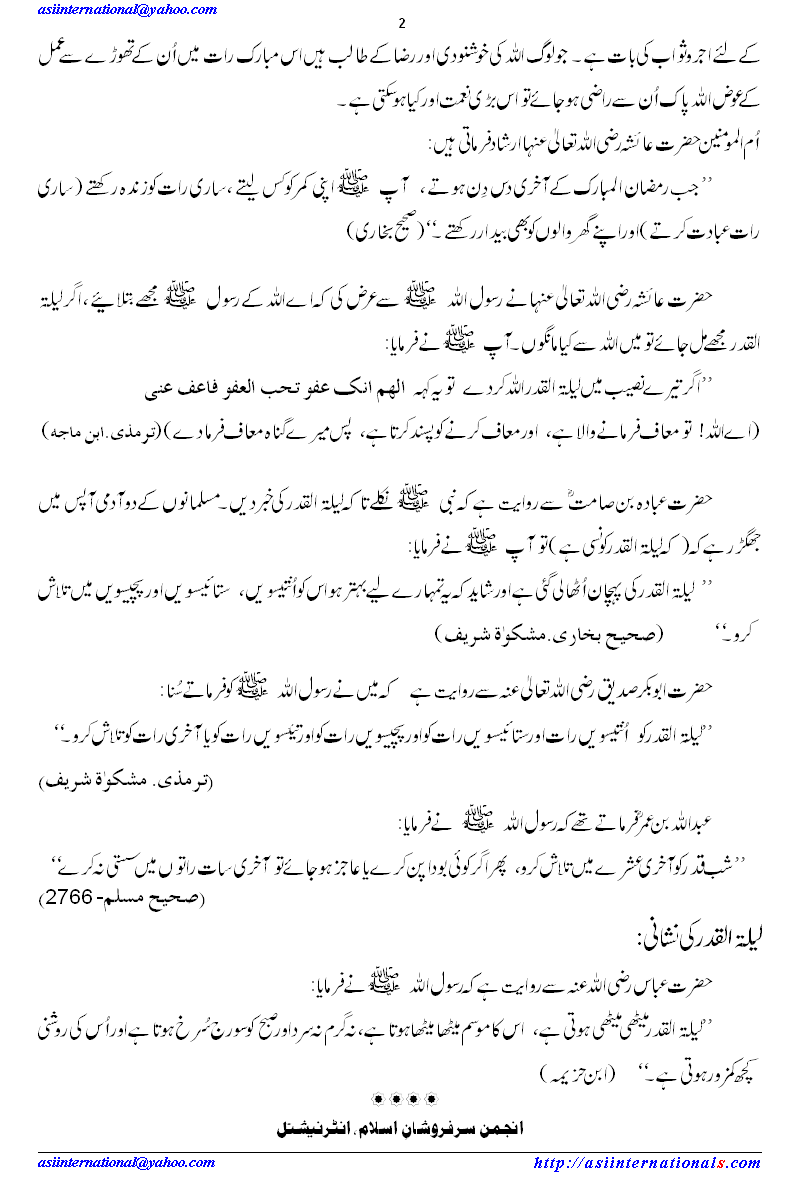 asiinternational@yahoo.com
2
کے لئے اجر و ثواب کی بات ہے ۔ جو لوگ اللہ کی خوشنودی اور رضا کے طالب ہیں اس مبارک رات میں اُن کے تھوڑے سے عمل
کے عوض اللہ پاک اُن سے راضی ہو جائے تو اس بڑی نعمت اور کیا ہو سکتی ہے ۔
اُم المومنین حضرت عائشہ رضی اللہ تعالیٰ عنہا ارشاد فرماتی ہیں:
’’جب رمضان المبارک کے آخری دس دِن ہوتے ، آپ ﷺ اپنی کمر کو کس لیتے ،ساری رات کو زندہ رکھتے (ساری
رات عبادت کرتے )اور اپنے گھر والوں کو بھی بیدار رکھتے ۔‘‘(صحیح بخاری)
حضرت عائشہ رضی اللہ تعالیٰ عنہا نے رسول اللہ ﷺ سے عرض کی کہ اے اللہ کے رسول ﷺ مجھے بتلایئے ،اگر لیلۃ
القدر مجھے مل جائے تو میں اللہ سے کیا مانگوں ۔آپ ﷺ نے فرمایا:
’’اگر تیرے نصیب میں لیلۃ القدر اللہ کردے تو یہ کہہ الھم انک عفو تحب العفو فاعف عنی
(اے اللہ! تو معاف فرمانے والا ہے، اور معاف کرنے کو پسند کرتا ہے، پس میرے گناہ معاف فرما دے)(ترمذی.ابن ماجہ)
حضرت عبادہ بن صامتؓ سے روایت ہے کہ نبی ﷺ نکلے تا کہ لیلۃ القدر کی خبر دیں ۔مسلمانوں کے دو آدمی آپس میں
جھگڑ رہے کہ( کہ لیلۃ القدر کونسی ہے )تو آپ ﷺ نے فرمایا:
’’ لیلۃ القدر کی پہچان اُٹھالی گئی ہے اور شاید کہ یہ تمہارے لیے بہتر ہو اس کو اُنتیسویں، ستائیسویں اور پچیسویں میں تلاش
کرو۔‘‘ (صحیح بخاری.مشکوٰۃ شریف)
حضرت ابوبکر صدیق رضی اللہ تعالیٰ عنہ سے روایت ہے کہ میں نے رسول اللہ ﷺ کو فرماتے سُنا:
’’لیلۃ القدر کو اُنتیسویں رات اور ستائیسویں رات کو اور پچیسویں رات کو اور تیئسویں رات کو یا آخری رات کو تلاش کرو۔‘‘
(ترمذی. مشکوٰۃ شریف)
عبداللہ بن عمرؓ فرماتے تھے کہ رسول اللہ ﷺ نے فرمایا:
’’شب قدر کو آخری عشرے میں تلاش کرو، پھر اگر کوئی بودا پن کرے یا عاجز ہو جائے تو آخری سات راتوں میں سستی نہ کرے‘‘
(صحیح مسلم-2766)
لیلۃ القدر کی نشانی:
حضرت عباس رضی اللہ عنہ سے روایت ہے کہ رسول اللہ ﷺ نے فرمایا:
’’لیلۃ القدر میٹھی میٹھی ہوتی ہے، اس کا موسم میٹھا میٹھا ہوتا ہے، نہ گرم نہ سرد اور صبح کو سورج سُرخ ہوتا ہے اور اُس کی روشنی
کچھ کمزور ہوتی ہے۔‘‘ (ابن خزیمہ)
انجمن سرفروشانِ اسلام، انٹرنیشنل
asiinternational@yahoo.com http://asiinternationals.com